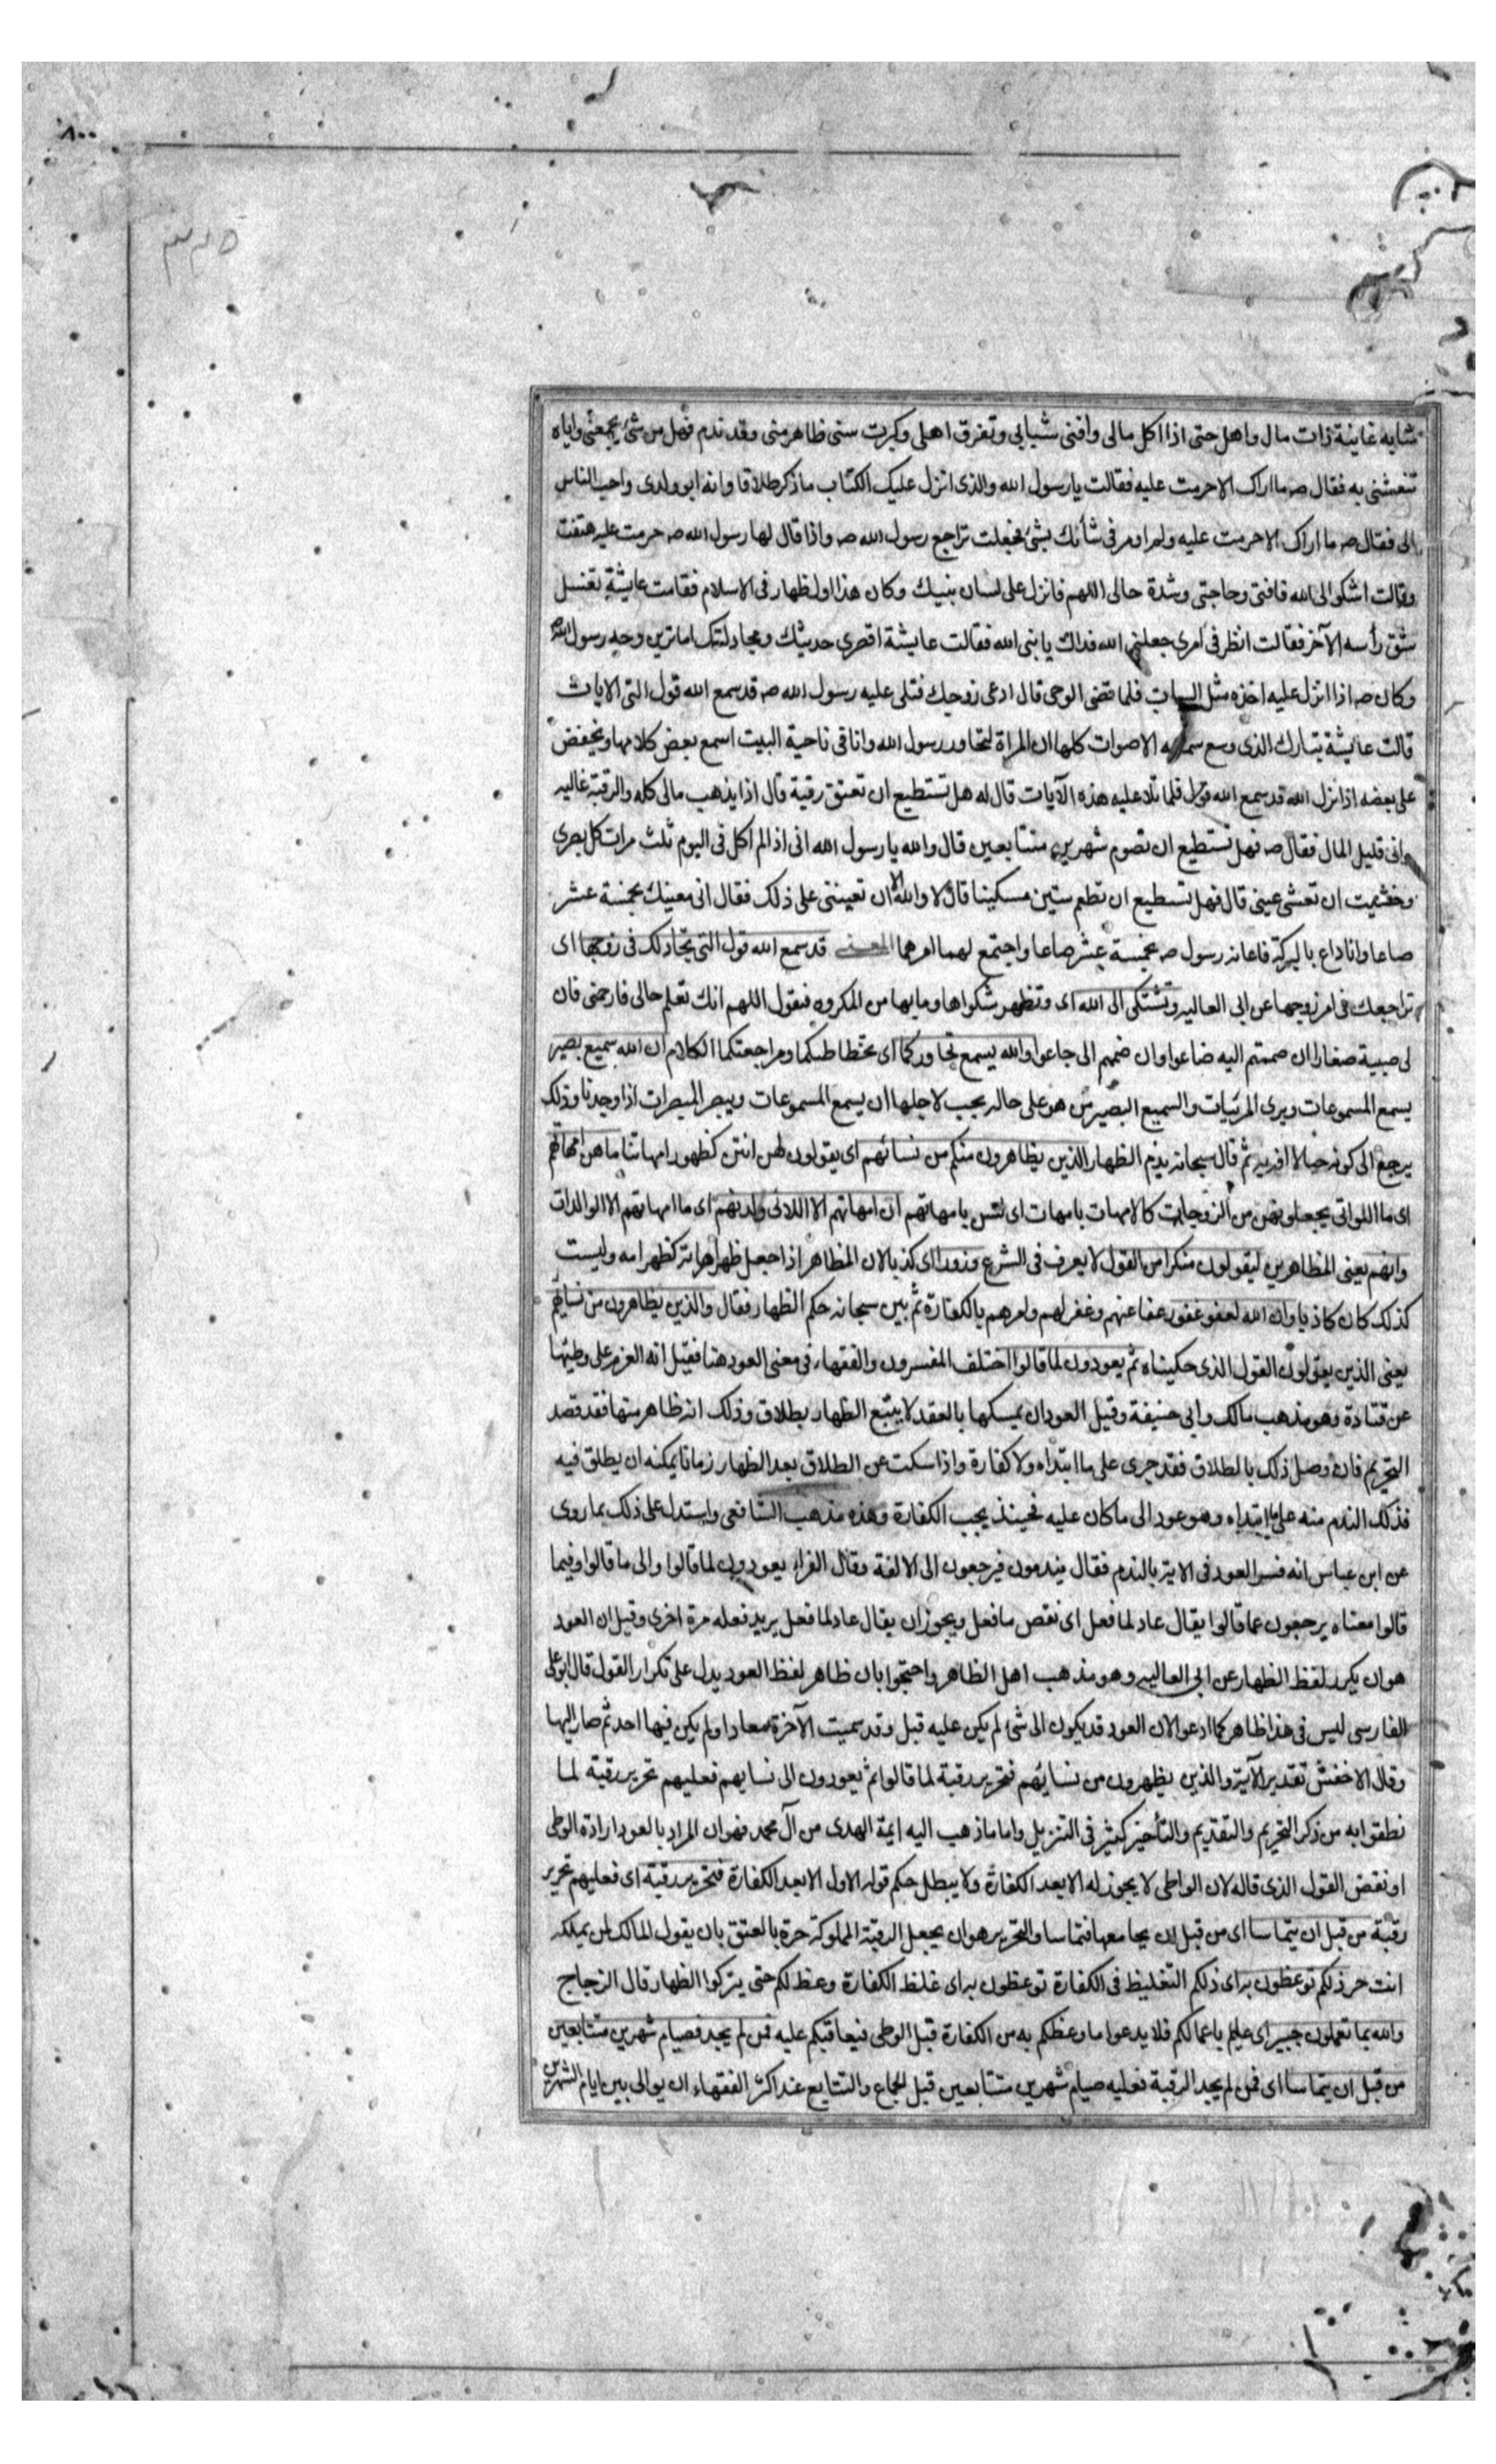 ٨٠٠
شابه غانية ذات مال واهل حتى اذا اكل مالى وافنى شبابى وتفرق اهلى وكبرت سنى ظاهر منى وقد ندم فهل من شئ يجمعنى واياه
تنعشنى به فقال صه ما اراك الا حرمت عليه فقالت يا رسول الله والذى انزل عليك الكتاب ما ذكر طلاقا وانه ابو ولدى واحب الناس
الى فقال صه ما اراك الا حرمت عليه ولم اومر فى شأنك بشئ فجعلت تراجع رسول الله صه واذا قال لها رسول الله صه حرمت عليه هتفت
وقالت اشكو الى الله فاقتى وحاجتى وشدة حالى اللهم فانزل على لسان نبيك وكان هذا اول ظهار فى الاسلام فقامت عايشة تغسل
شق رأسه الآخر فقالت انظر فى امرى جعلنى الله فداك يا نبى الله فقالت عايشة اقصرى حديثك ومجادلتك اما ترين وجه رسول الله
وكان صه اذا انزل عليه اخذه مثل السبات فلما قضى الوحى قال ادعى زوجك فتلى عليه رسول الله صه قد سمع الله قول التى الايات
قالت عايشة تبارك الذى وسع سمعه الاصوات كلها ان المراة لتحاور رسول الله وانا فى ناحية البيت اسمع بعض كلامها ويخفض
على بعضه اذ انزل الله قد سمع الله قول فلما تلا عليه هذه الآيات قال له هل تستطيع ان تعتق رقبة قال اذا يذهب مالى كله والرقبة غاليه
وانى قليل المال فقال صه فهل تستطيع ان تصوم شهرين متتابعين قال والله يا رسول الله انى اذا لم اكل فى اليوم ثلث مرات كل بصرى
وخشيت ان تعشى عينى قال فهل تستطيع ان تطعم ستين مسكينا قال لا والله الا ان تعيننى على ذلك فقال انى معينك بخمسة عشر
صاعا وانا داع بالبركة فاعانه رسول صه بخمسة عشر صاعا واجتمع لهما امرهما المعنى قد سمع الله قول التى تجادلك فى زوجها اى
تراجعك فى امر زوجها عن ابى العاليه وتشتكى الى الله اى وتظهر شكواها وما بها من المكروه فتقول اللهم انك تعلم حالى فارحمنى فان
لى صبية صغارا ان ضممتم اليه ضاعوا وان ضمهم الى جاعوا والله يسمع تحاوركما اى تخطاطبكما ومراجعتكما الكلام ان الله سميع بصير
يسمع المسموعات ويرى المرئيات والسميع البصير من هو على حاله يجب لاجلها ان يسمع المسموعات ويبصر المبصرات اذا وجدتا وذلك
يرجع الى كونه حيا لا افة به ثم قال سبحانه يذم الظهار الذين يظاهرون منكم من نسائهم اى يقولون لهن انتن كظهور امهاتنا ما هن امهاتهم
اى ما اللواتى يجعلونهن من الزوجات كالامهات بامهات اى لسن بامهاتهم ان امهاتهم الا اللائى ولدنهم اى ما امهاتهم الا الوالدات
وانهم يعنى المظاهرين ليقولون منكرا من القول لا يعرف فى الشرع وزورا اى كذبا لان المظاهر اذا جعل ظهر امراته كظهر امه وليست
كذلك كان كاذبا وان الله لعفو غفور عفا عنهم وغفر لهم وامرهم بالكفارة ثم بين سبحانه حكم الظهار فقال والذين يظاهرون من نسائهم
يعنى الذين يقولون القول الذى حكيناه ثم يعودون لما قالوا اختلف المفسرون والفقهاء فى معنى العود هنا فقيل انه العزم على وطيها
عن قتادة وهو مذهب مالك وابى حنيفة وقيل العود ان يمسكها بالعقد لا يتبع الظهار بطلاق وذلك انه ظاهر منها فقد قصد
التحريم فان وصل ذلك بالطلاق فقد جرى على ما ابتداه ولا كفارة واذا سكت عن الطلاق بعد الظهار زمانا يمكنه ان يطلق فيه
فذلك الندم منه على ما ابتداه وهو عود الى ما كان عليه فحينئذ يجب الكفارة وهذه مذهب الشافعى واستدل على ذلك بما روى
عن ابن عباس انه فسر العود فى الاية بالندم فقال يندمون فيرجعون الى الالفة وقال الفراء يعودون لما قالوا والى ما قالوا وفيما
قالوا معناه يرجعون عما قالوا يقال عاد لما فعل اى نقض ما فعل ويجوز ان يقال عاد لما فعل يريد فعله مرة اخرى وقيل ان العود
هو ان يكرر لفظ الظهار عن ابى العاليه وهو مذهب اهل الظاهر واحتجوا بان ظاهر لفظ العود يدل على تكرار القول قال ابو على
الفارسى ليس فى هذا ظاهر كما ادعوا لان العود قد يكون الى شئ لم يكن عليه قبل وقد سميت الآخرة معادا ولم يكن فيها احد ثم صار اليها
وقال الاخفش تقدير الآية والذين يظهرون من نسائهم فتحرير رقبة لما قالوا ثم يعودون الى نسايهم فعليهم تحرير رقبة لما
نطقوا به من ذكر التحريم والتقديم والتأخير كثير فى التنزيل واما ما ذهب اليه ايمة الهدى من آل محمد فهو ان المراد بالعود ارادة الوطى
او نقض القول الذى قاله لان الواطى لا يجوز له الا بعد الكفارة ولا يبطل حكم قوله الاول الا بعد الكفارة فتحرير رقبة اى فعليهم تحرير
رقبة من قبل ان يتماسا اى من قبل ان يجامعها فتماسا والتحرير هو ان يجعل الرقبة المملوكة حرة بالعتق بان يقول المالك لمن يملكه
انت حر ذلكم توعظون به اى ذلكم التغليظ فى الكفارة توعظون به اى غلظ الكفارة وعظ لكم حتى يتركوا الظهار قال الزجاج
والله بما تعملون خبير اى عليم باعمالكم فلا يدعوا ما وعظكم به من الكفارة قبل الوطى فيعاقبكم عليه فمن لم يجد فصيام شهرين متتابعين
من قبل ان يتماسا اى فمن لم يجد الرقبة فعليه صيام شهرين متتابعين قبل الجماع والتتابع عند اكثر الفقهاء ان يوالى بين ايام الشهرين